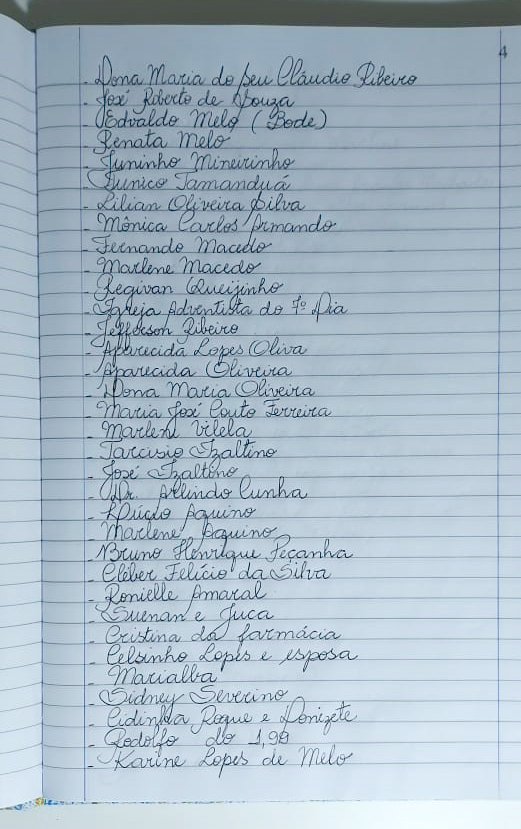 4
- Dona Maria do seu Cláudio Ribeiro
- José Roberto de Souza
- Edvaldo Melo (Bode)
- Renata Melo
- Juninho Mineirinho
- Eunico Tamanduá
- Lilian Oliveira Silva
- Mônica Carlos Armando
- Fernando Macedo
- Marlene Macedo
- Regivan Queijinho
- Igreja Adventista do 7º Dia
- Jefferson Ribeiro
- Aparecida Lopes Oliva
- Aparecida Oliveira
- Dona Maria Oliveira
- Maria José Couto Ferreira
- Marlene Vilela
- Tarcisio Izaltino
- José Izaltino
- Dr. Arlindo Cunha
- Lúcio Aquino
- Marlene Aquino
- Bruno Henrique Peçanha
- Cléber Felício da Silva
- Ronielle Amaral
- Suenan e Juca
- Cristina da farmácia
- Celsinho Lopes e esposa
- Marialba
- Sidney Severino
- Cidinha Roque e Donizete
- Rodolfo do 1,99
- Karine Lopes de Melo